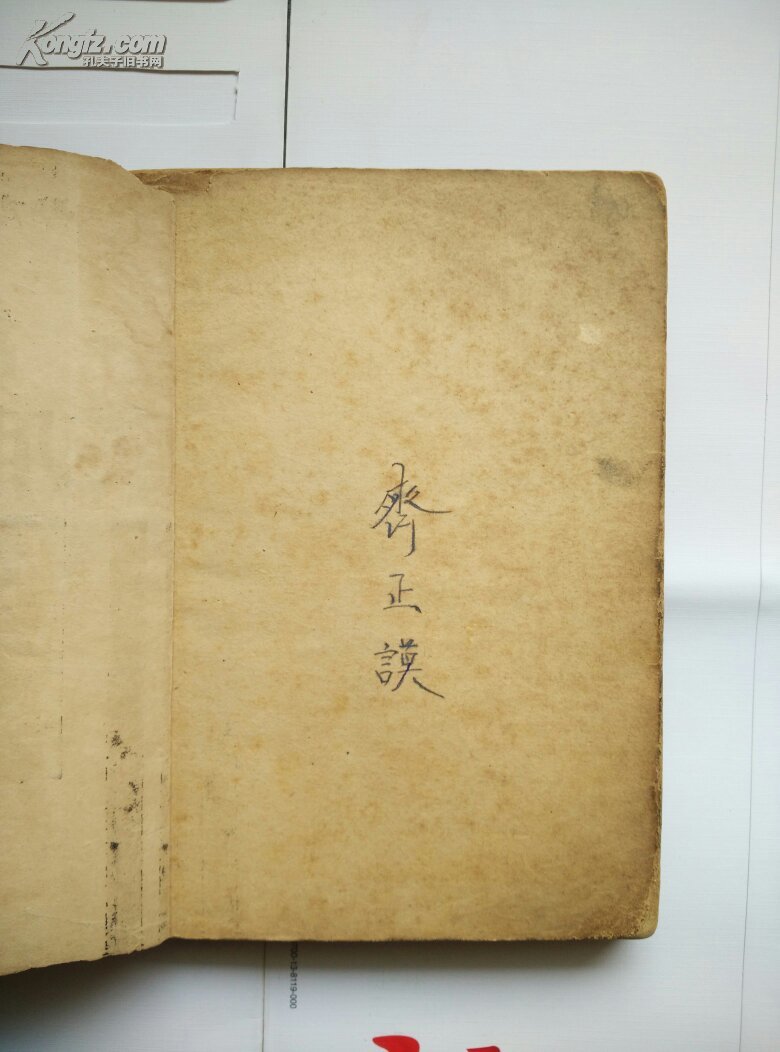 Kongfz.com
孔夫子旧书网
齊
正
謨
00-13-8119-000